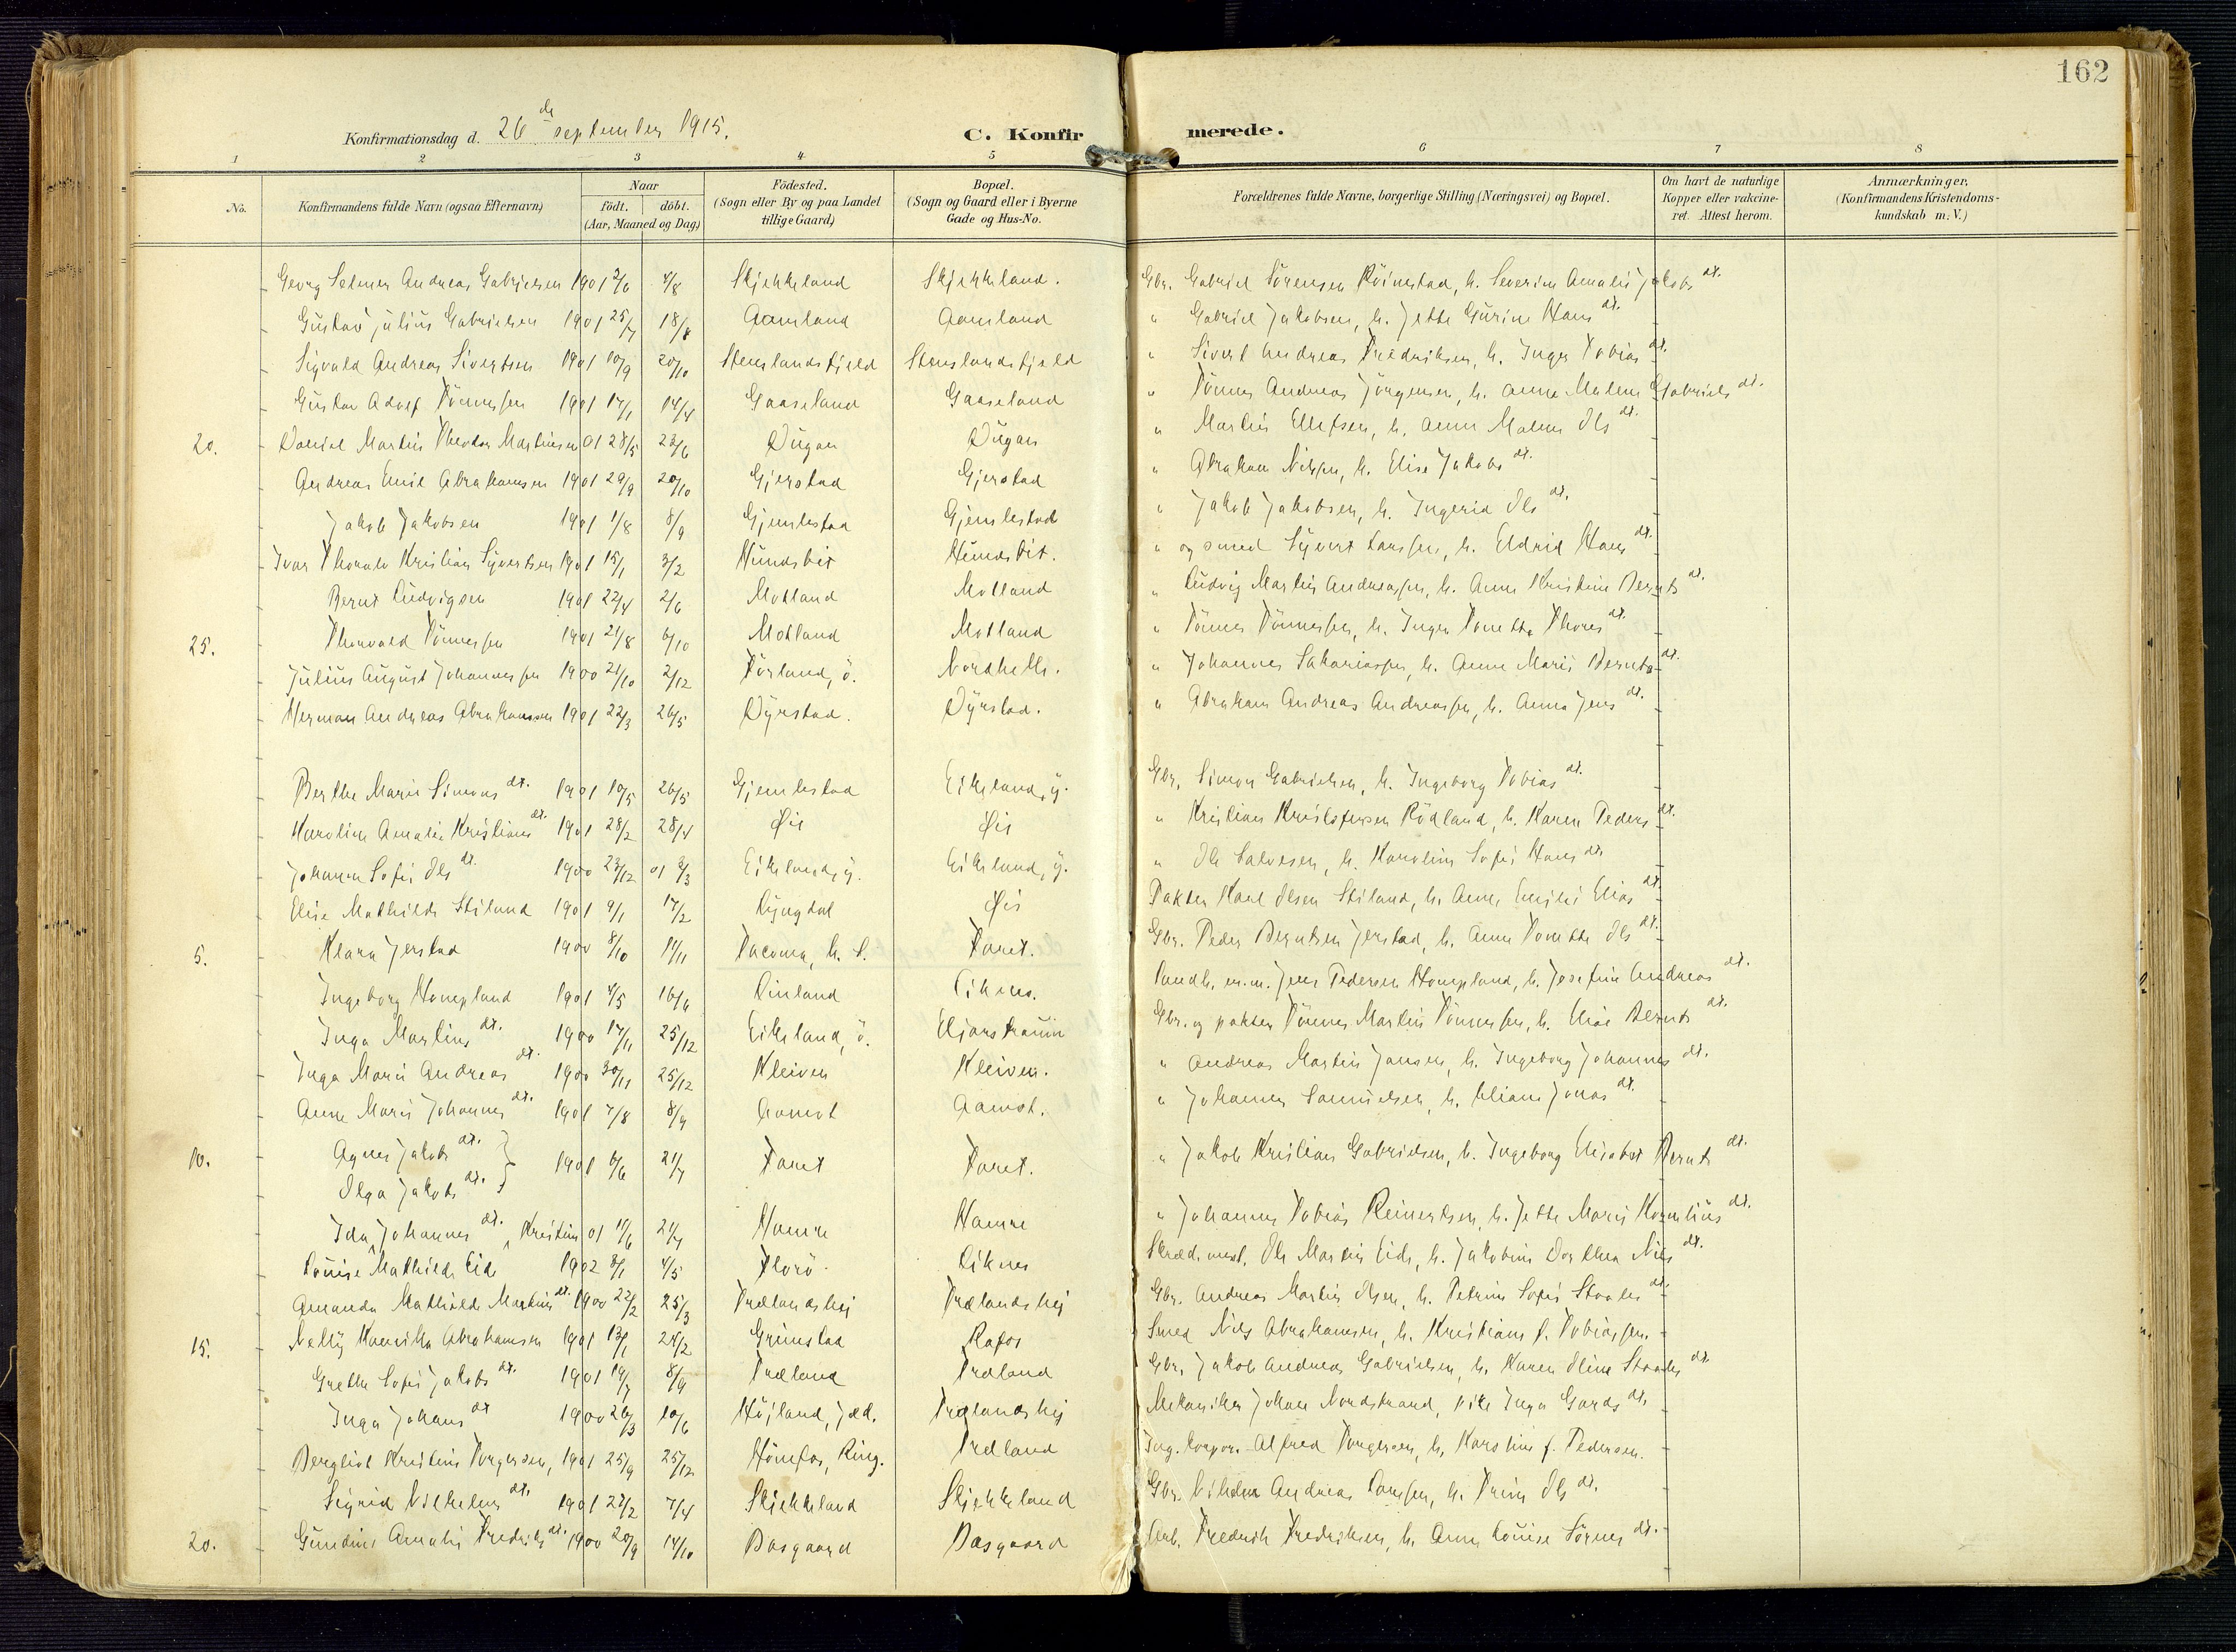 162
Konfirmationsdag d. 26de september 1915. C. Konfirmerede.
1 2 3 4 5 6 7 8
No. Konfirmandens fulde Navn (ogsaa Efternavn) Naar Födt. döbt. (Aar, Maaned og Dag) Födested. (Sogn eller By og paa Landet tillige Gaard) Bopæl. (Sogn og Gaard eller i Byerne Gade og Hus-No. Forældrenes fulde Navne, borgerlige Stilling (Næringsvei) og Bopæl. Om havt de naturlige Kopper eller vakcineret. Attest herom. Anmærkninger. (Konfirmandens Kristendomskundskab m. V.)
Georg Selmer Andreas Gabrielsen 1901 2/6 4/8 Skjekkeland Skjekkeland. Gbr. Gabriel Sörensen Röinestad, h. Severine Amalie Jakobs dt.
Gustav Julius Gabrielsen 1901 25/7 18/8 Aamland Aamland " Gabriel Jakobsen, h. Jette Gurine Hans dt.
Sigvald Andreas Sivertsen 1901 10/9 20/10 Stenslandsfjeld Stenslandsfjeld " Sivert Andreas Fredriksen, h. Inger Tobias dt.
Gustav Adolf Tönnessen 1901 17/1 14/4 Gaaseland Gaaseland " Tönnes Andreas Jörgensen, h. Anne Malene Gabriels dt.
20. Daniel Martin Theodor Martinsen 01 28/5 23/6 Dugan Dugan " Martin Ellefsen, h. Anne Malene Ols dt.
Andreas Emil Abrahamsen 1901 29/9 20/10 Gjerstad Gjerstad " Abraham Nilsen, h. Elise Jakobs dt.
Jakob Jakobsen 1901 1/8 8/9 Gjemlestad Gjemlestad " Jakob Jakobsen, h. Ingerid Ols dt.
Ivar Thorvald Kristian Syvertsen 1901 15/1 3/2 Hundsbit Hundsbit. " og smed Syvert Larssen, h. Eldrid Hans dt.
Bernt Ludvigsen 1901 22/4 2/6 Motland Motland " Ludvig Martin Andreassen, h. Anne Kristine Bernts dt.
25. Thorvald Tönnessen 1901 21/8 6/10 Motland Motland " Tönnes Tönnessen, h. Inger Tonette Thores dt.
Julius August Johannessen 1900 21/10 2/12 Törland, ö. Nordhelle. " Johannes Sakariassen, h. Anne Marie Bernts dt.
Herman Andreas Abrahamsen 1901 22/3 26/5 Dyrstad. Dyrstad. " Abraham Andreas Andreassen, h. Anna Jens dt.
Berthe Marie Simons dt. 1901 10/5 26/5 Gjemlestad Eikeland, y. Gbr. Simon Gabrielsen, h. Ingeborg Tobias dt.
Karoline Amalie Kristians dt. 1901 28/2 28/4 Öis Öis " Kristian Kristofersen Rödland, h. Karen Peders dt.
Johanne Sofie Ols dt. 1900 23/12 01 3/3 Eikeland, y. Eikeland, y. " Ole Salvesen, h. Karoline Sofie Hans dt.
Elise Mathilde Stiland 1901 9/1 17/2 Lyngdal Öis Pakter Karl Olsen Stiland, h. Anne Emilie Elias dt.
5. Klara Jerstad 1900 8/10 11/11 Tacoma, Faret. Gbr. Peder Berntsen Jerstad, h. Anne Tonette Ols dt.
Ingeborg Hompland 1901 4/5 16/6 Linland Liknes. Landh. m.m. Jens Pedersen Hompland, h. Josefine Andreas dt.
Inga Martins dt. 1900 17/11 25/12 Eikeland, ö. Gbr. og pakter Tönnes Martin Tönnessen, h. Bernts dt.
Inga Marie Andreas dt. 1900 30/11 25/12 Kleiven Kleiven. " Andreas Martin Jansen, h. Ingeborg Johannes dt.
Anne Marie Johannes dt. 1901 7/8 8/9 Aamot Aamot. " Johannes Samuelsen, h. Jonas dt.
10. Agnes Jakobs dt. } 1901 6/6 21/7 Faret Faret. " Jakob Kristian Gabrielsen, h. Ingeborg Elisabet Bernts dt.
Olga Jakobs dt. }
Ida Johannes dt. Kristine 01 11/6 21/7 Hamre Hamre " Johannes Tobias Reinertsen, h. Jette Marie Kornelius dt.
Louise Mathilde Eide 1902 3/1 4/5 Florö Liknes Skræd.mest. Ole Martin Eide, h. Jakobine Dorthea Nils dt.
Amanda Mathilde Martins dt. 1900 22/2 25/3 Trælandshej Trælandshej Gbr. Andreas Martin Olsen, h. Petrine Sofie Staales dt.
15. Nelly Henrikka Abrahamsen 1901 13/1 24/2 Grimstad Rafos Smed Nils Abrahamsen, h. Kristiane f. Tobiassen.
Grethe Sofie Jakobs dt. 1901 19/7 8/9 Træland Træland Gbr. Jakob Andreas Gabrielsen, h. Karen Oline Staales dt.
Inga Johans dt 1900 26/3 10/6 Höjland, Jæd. Trælandshej Mekaniker Johan Nordstrand, pike Inga Gards dt.
Bergliot Kristine Torgersen, 1901 25/9 25/12 Hönefos, Ring. Træland Alfred Torgersen, h. Karstine f. Pedersen.
Sigrid Vilhelms dt. 1901 27/2 7/4 Skjekkeland Skjekkeland Gbr. Vilhelm Andreas Larssen, h. Trine Ols dt.
20. Gundine Amalie Fredriks dt. 1900 20/9 14/10 Aasgaard Aasgaard Arb. Fredrik Fredriksen, h. Anne Louise Sörens dt.